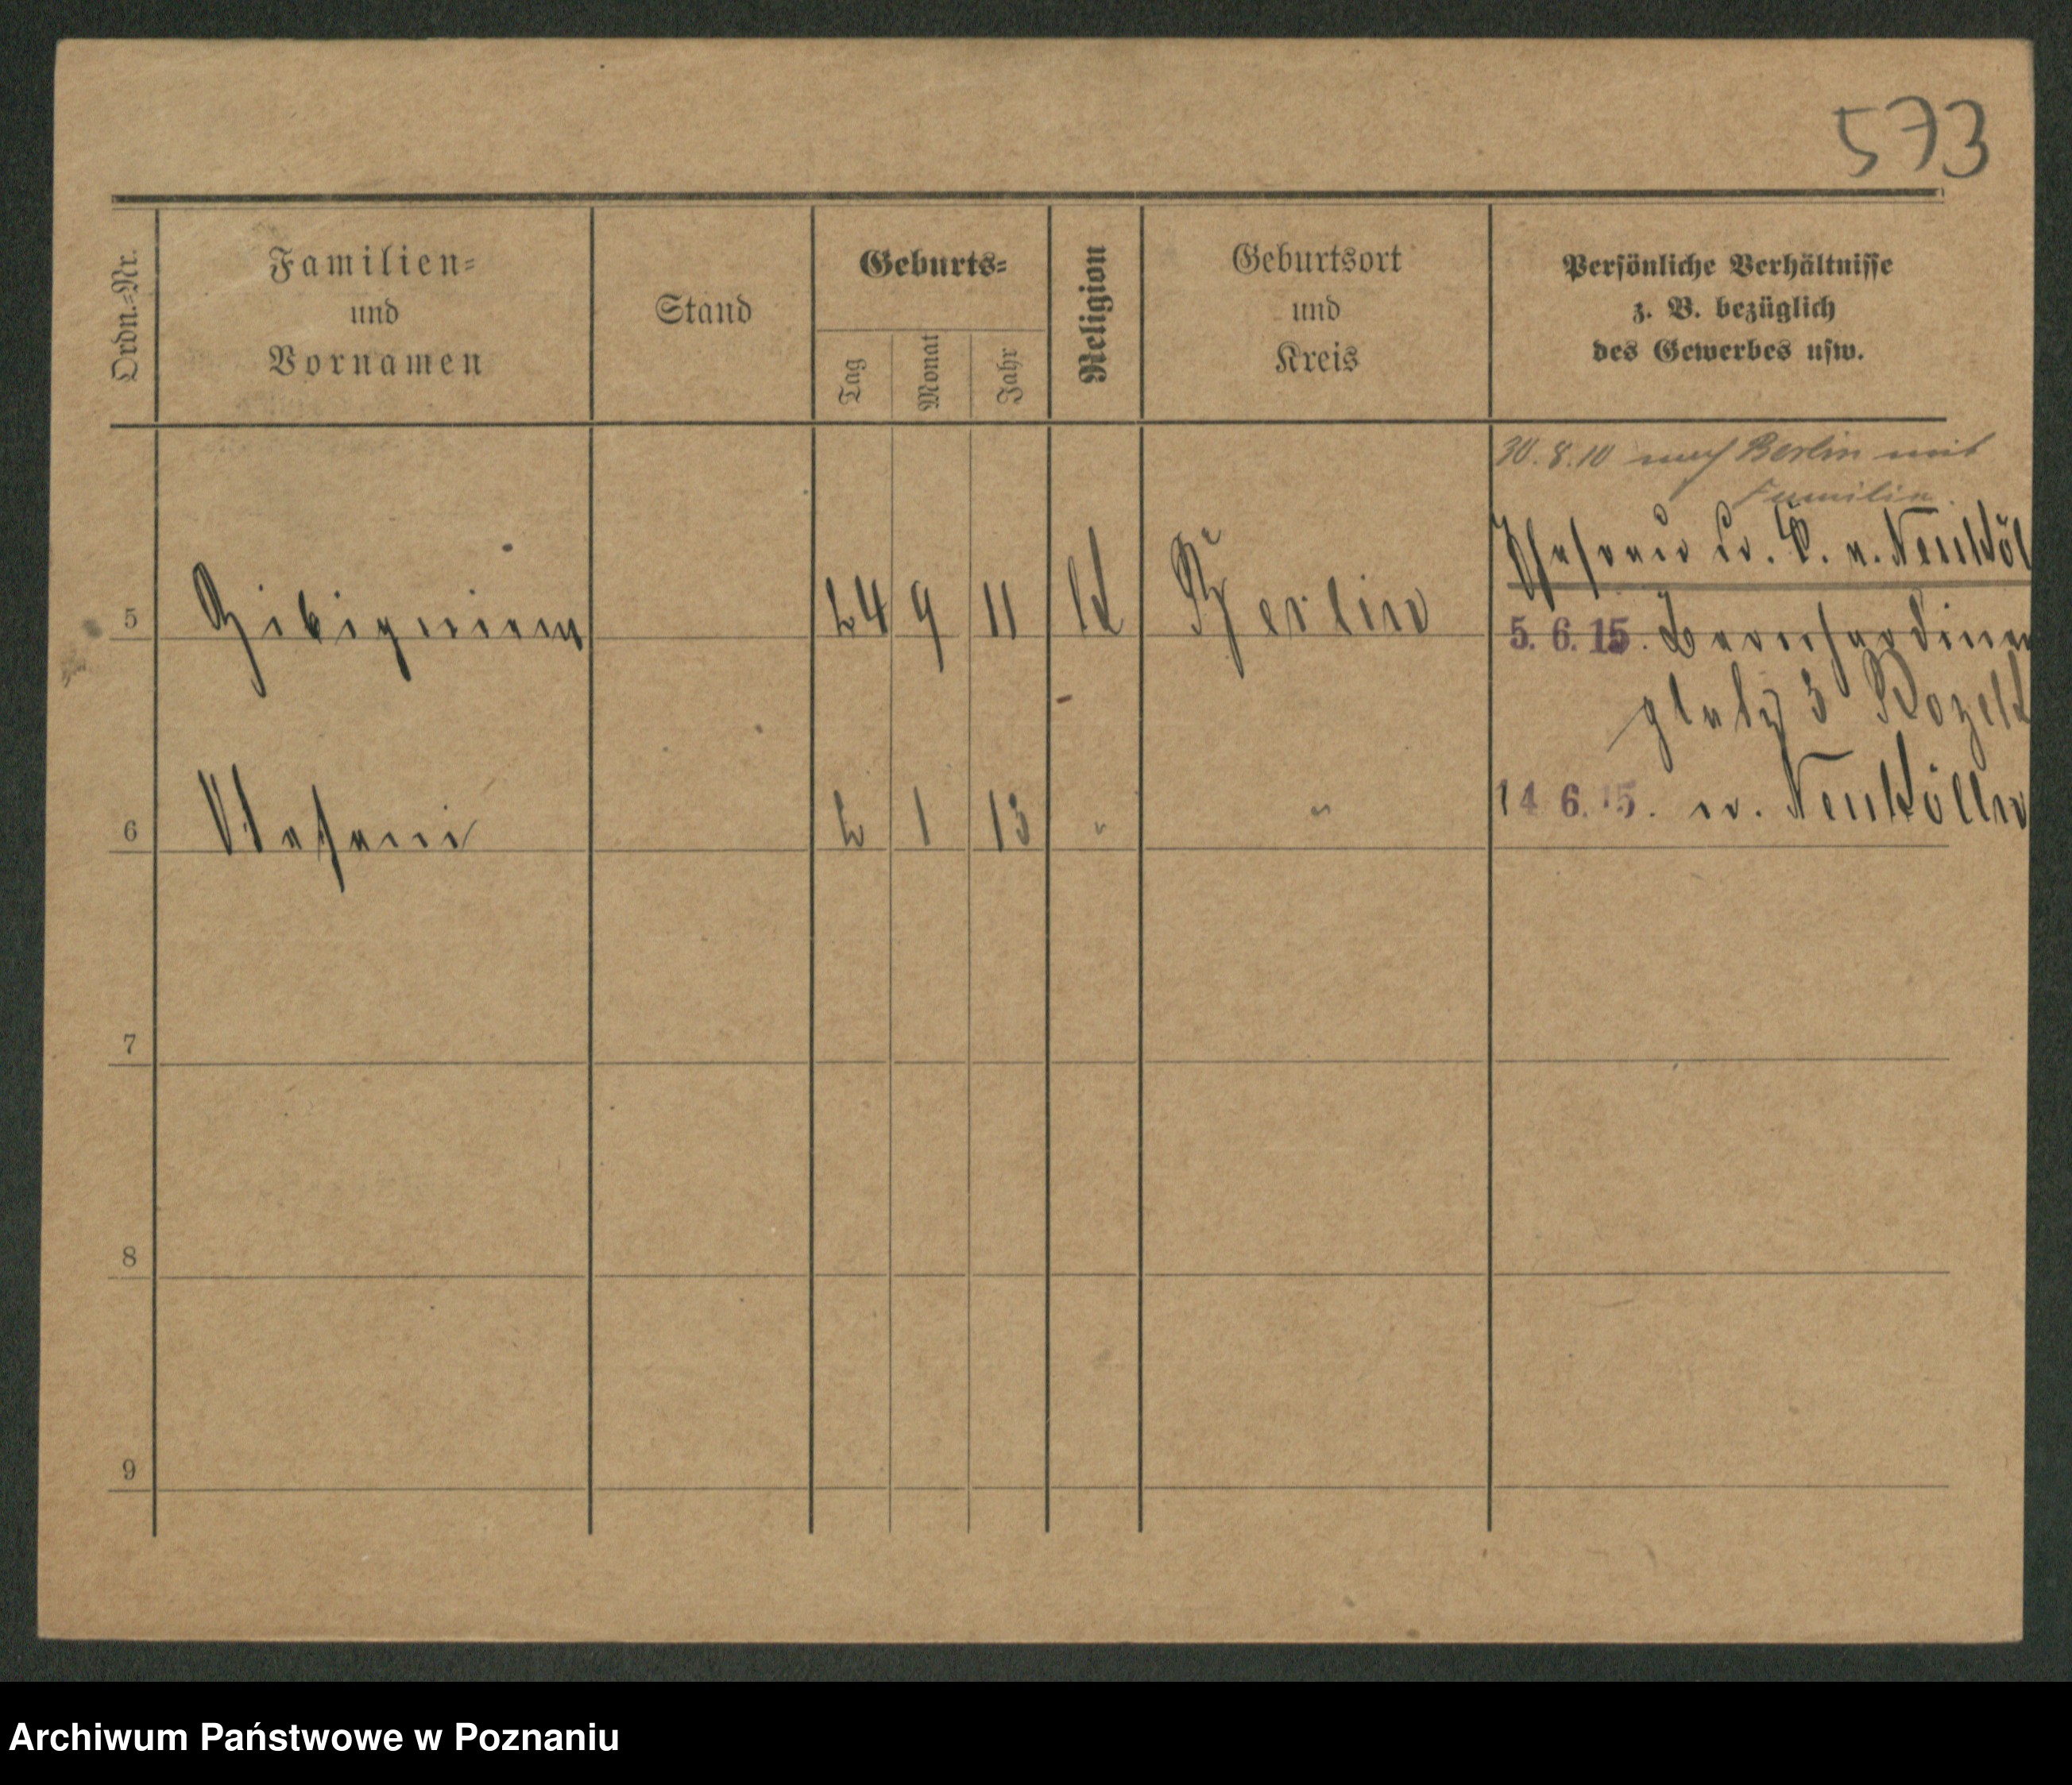 573
Ordn.-Nr.
Familien-
und
Vornamen
Stand
Geburts-
Tag
Monat
Jahr
Religion
Geburtsort
und
Kreis
Persönliche Verhältnisse
z. B. bezüglich
des Gewerbes usw.
30.8.10 nach Berlin mit
Familie
Ehefrau u. K. n. Neuköl
5 24 9 11 K Berlin
5. 6. 15. Bernhardiner
platz 3
6 Stefani 2 1 13 " "
14 6. 15. n. Neukölln
7
8
9
Archiwum Państwowe w Poznaniu